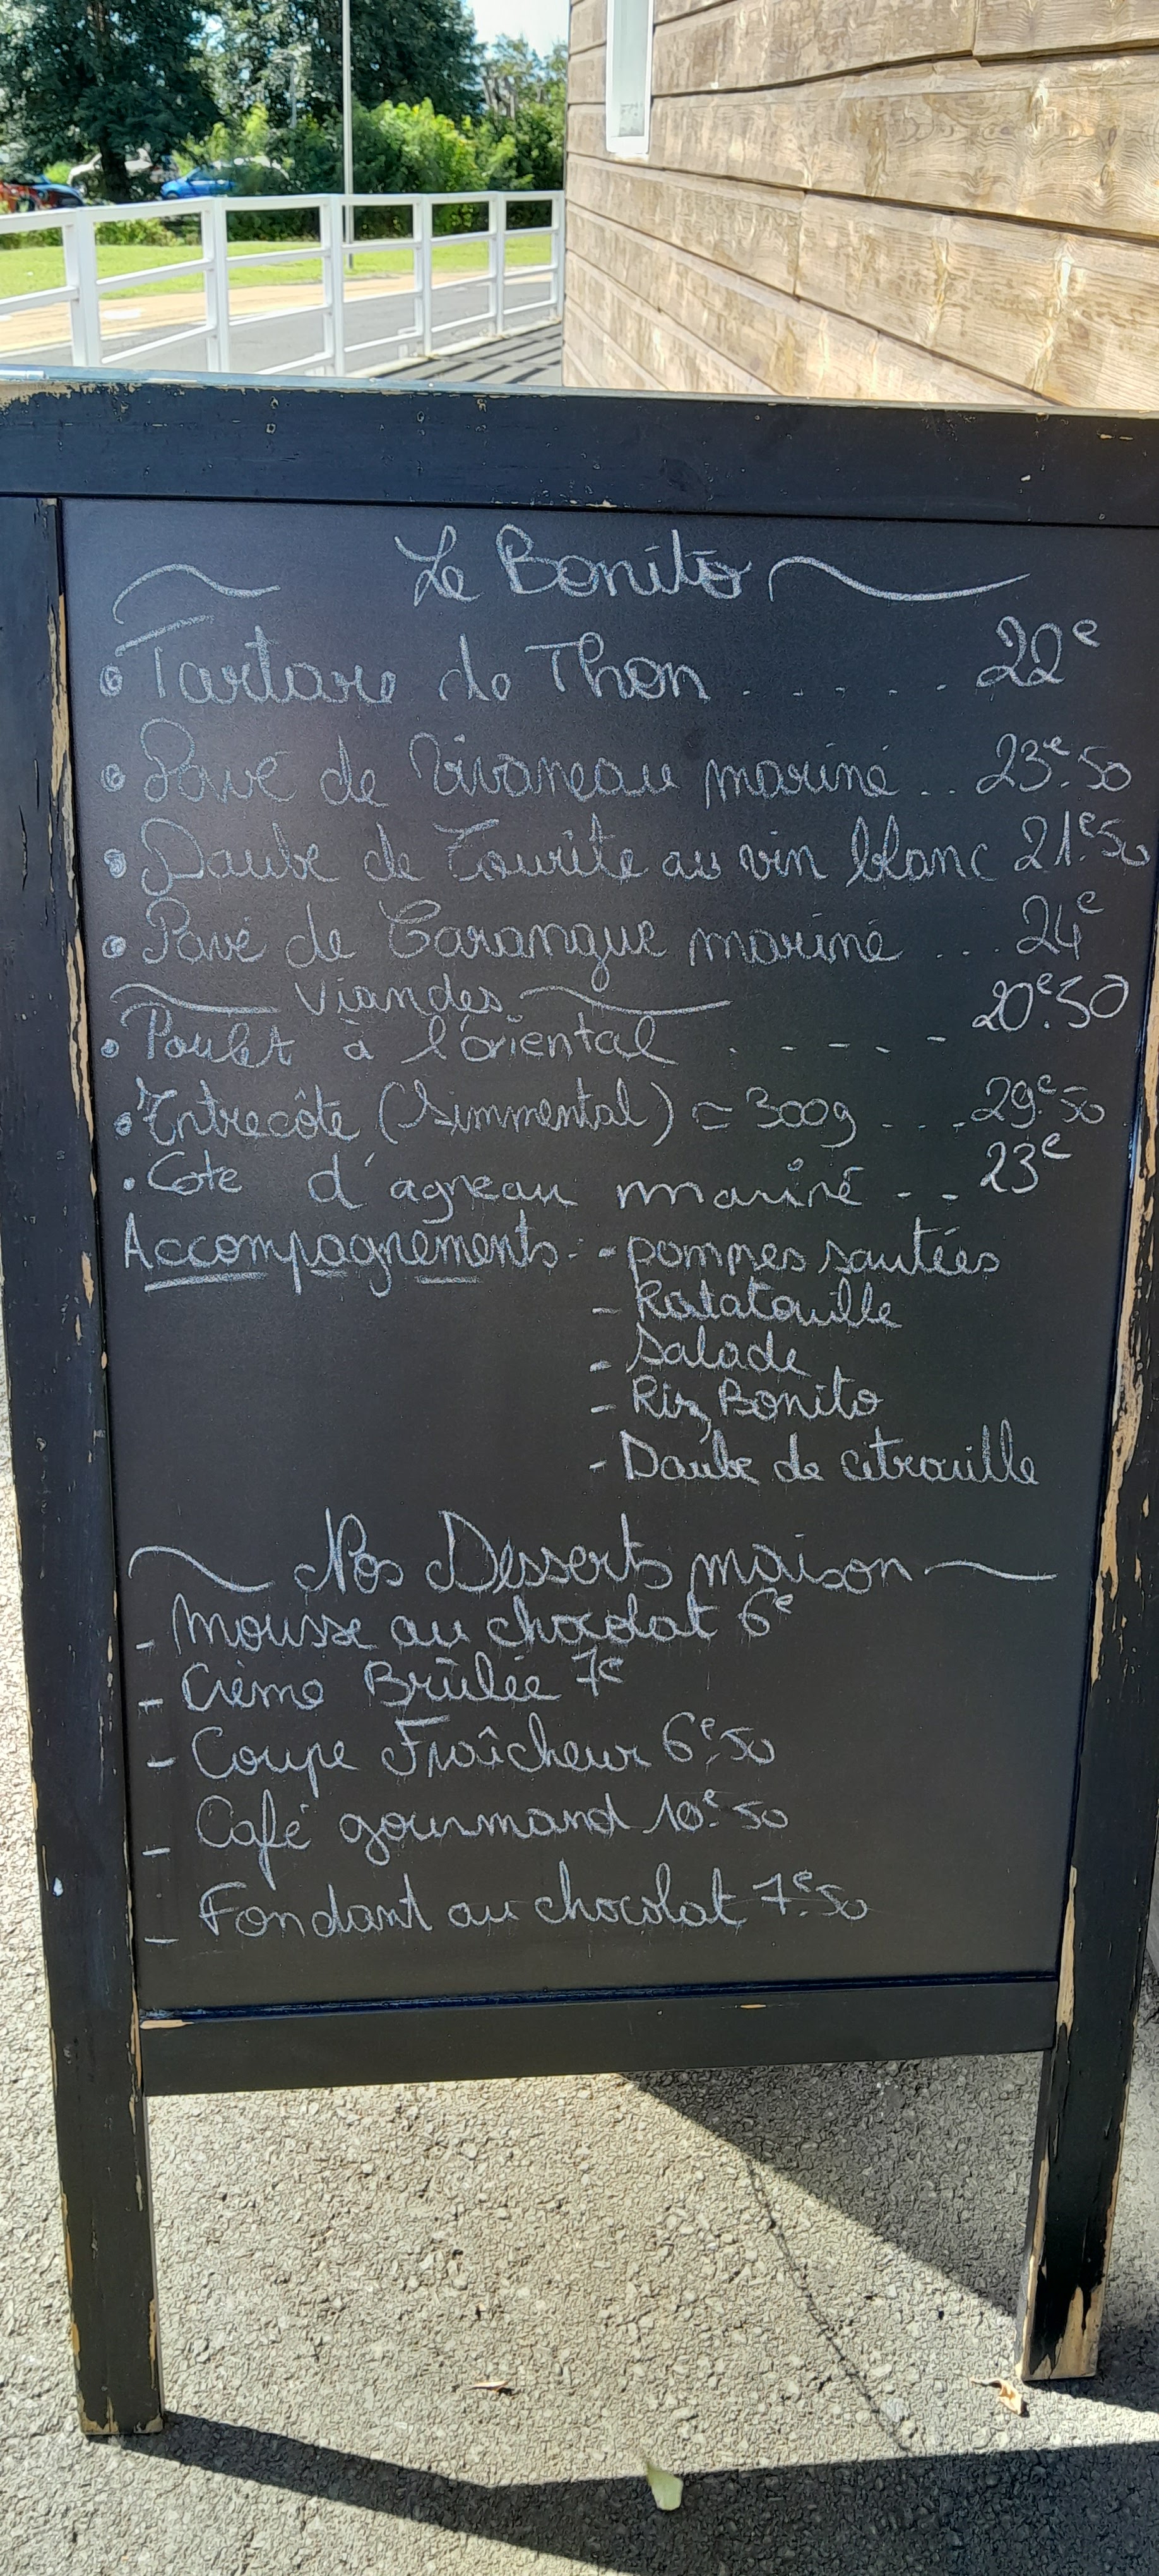 Le Bonito
Tartare de Thon ..... 22€
Pavé de Vivaneau mariné .. 23€.50
Daube de Zourite au vin blanc 21€.50
Pavé de Carangue mariné ... 24€
Viandes
Poulet à l'oriental . - - - - 20€.50
Entrecôte (Simmental) = 300g ... 29€.50
Cote d'agneau mariné .. 23€
Accompagnements: - pommes sautées
- Ratatouille
- Salade
- Riz Bonito
- Daube de citrouille
Nos Desserts maison
- Mousse au chocolat 6€
- Crème Brûlée 7€
- Coupe Fraîcheur 6€.50
- Café gourmand 10€.50
- Fondant au chocolat 7€.50